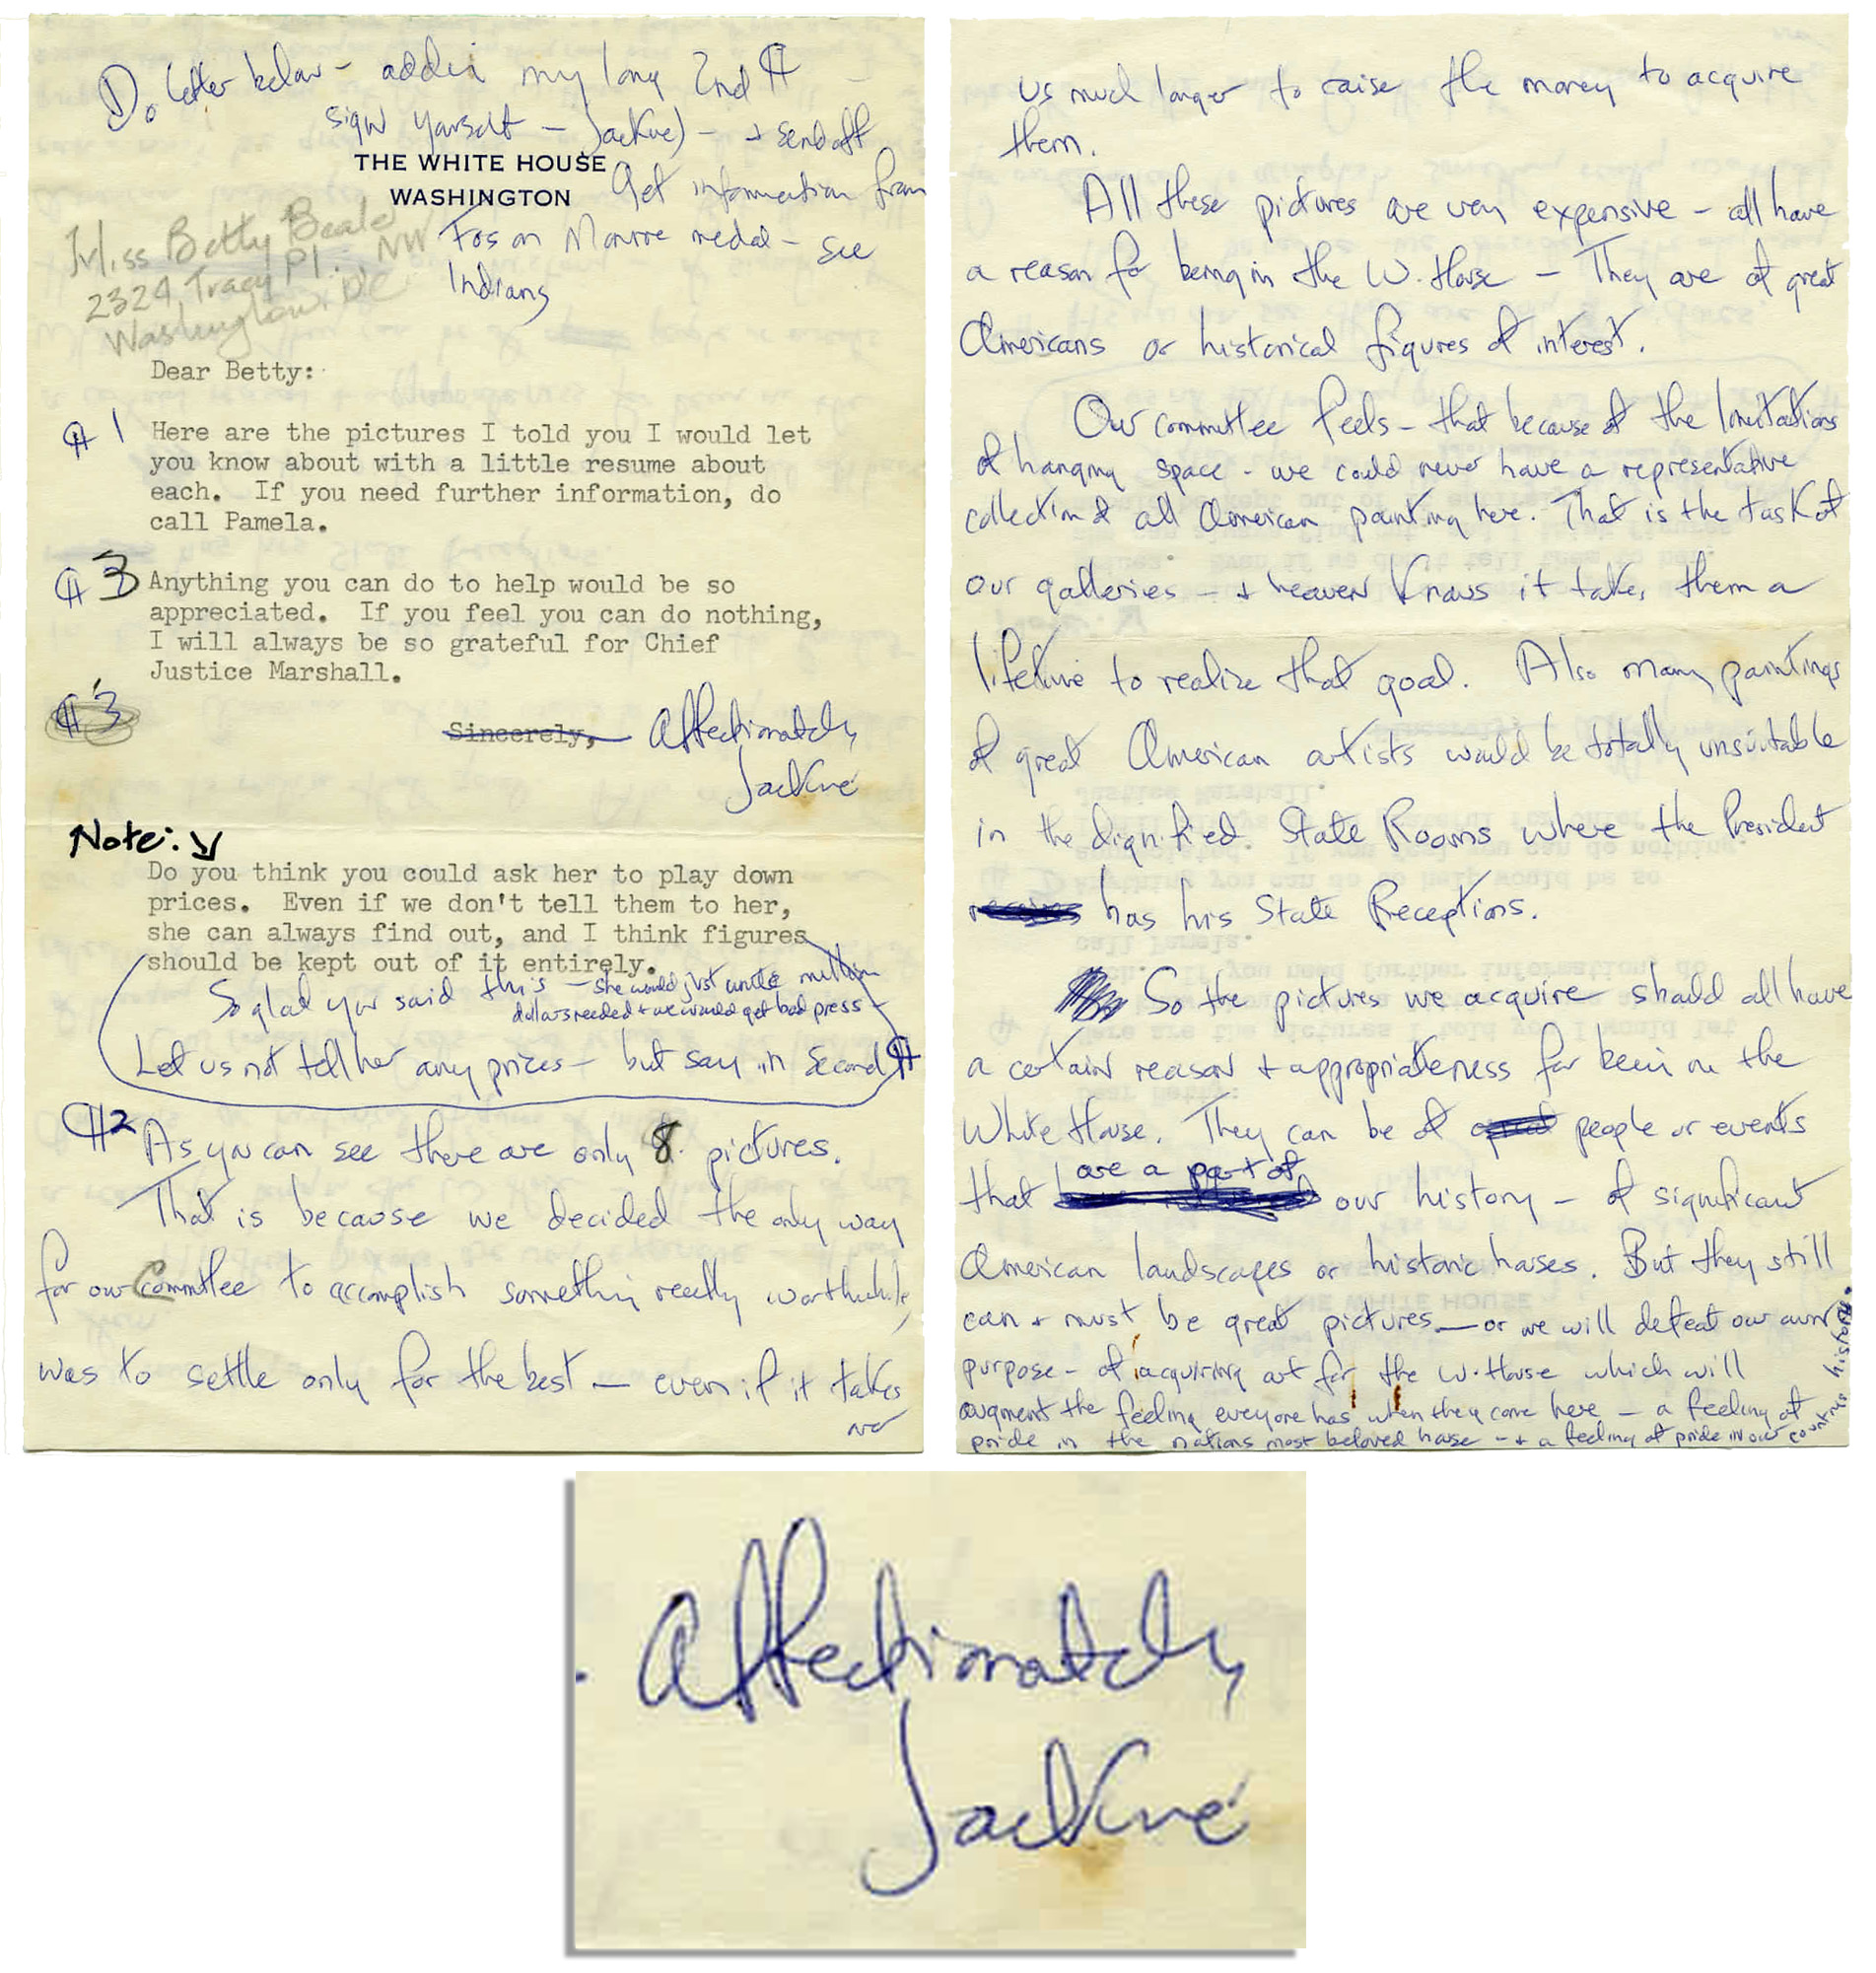 Do letter below - add in my long 2nd ¶
sign yourself - Jackie) - + send off
THE WHITE HOUSE
WASHINGTON
Get information from
Fosburgh Monroe medal - see
Indians
Miss Betty Beale
2324, Tracy Pl. NW
Washington, DC
Dear Betty:
¶ 1 Here are the pictures I told you I would let
you know about with a little resume about
each. If you need further information, do
call Pamela.
¶ 3 Anything you can do to help would be so
appreciated. If you feel you can do nothing,
I will always be so grateful for Chief
Justice Marshall.
¶ 3
Sincerely, Affectionately,
Jackie
Note:
Do you think you could ask her to play down
prices. Even if we don't tell them to her,
she can always find out, and I think figures
should be kept out of it entirely.
So glad you said this - she would just write million
dollars needed + we would get bad press -
Let us not tell her any prices - but say in second ¶
¶2 As you can see there are only 8 pictures.
That is because we decided the only way
for our Committee to accomplish something really worthwhile,
was to settle only for the best - even if it takes
us much longer to raise the money to acquire
them.
All these pictures are very expensive - all have
a reason for being in the W. House - They are of great
Americans or historical figures of interest.
Our committee feels - that because of the limitations
of hanging space - we could never have a representative
collection of all American painting here. That is the task of
our galleries - + heaven knows it takes them a
lifetime to realize that goal. Also many paintings
of great American artists would be totally unsuitable
in the dignified State Rooms where the President
has his State Receptions.
So the pictures we acquire should all have
a certain reason + appropriateness for being in the
White House. They can be of great people or events
that are a part of our history - of significant
American landscapes or historic houses. But they still
can + must be great pictures - or we will defeat our own
purpose - of acquiring art for the W. House which will
augment the feeling everyone has when they come here - a feeling of
pride in the nations most beloved house - + a feeling of pride in our countries history.
Affectionately,
Jackie